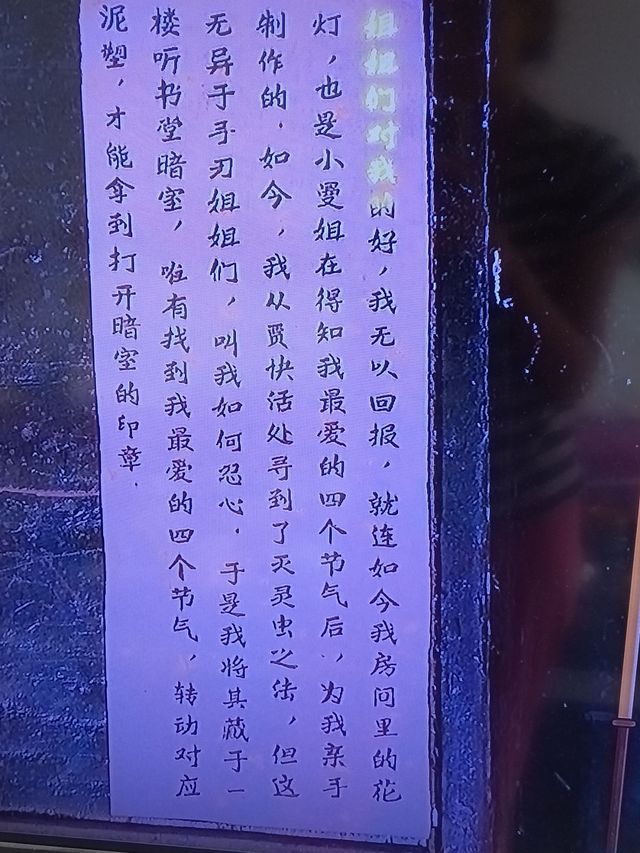 姐姐们对我的好，我无以回报，就连如今我房间里的花
灯，也是小曼姐在得知我最爱的四个节气后，为我亲手
制作的．如今，我从贾快活处寻到了灭灵虫之法，但这
无异于手刃姐姐们，叫我如何忍心．于是我将其藏于一
楼听书堂暗室，唯有找到我最爱的四个节气，转动对应
泥塑，才能拿到打开暗室的印章．